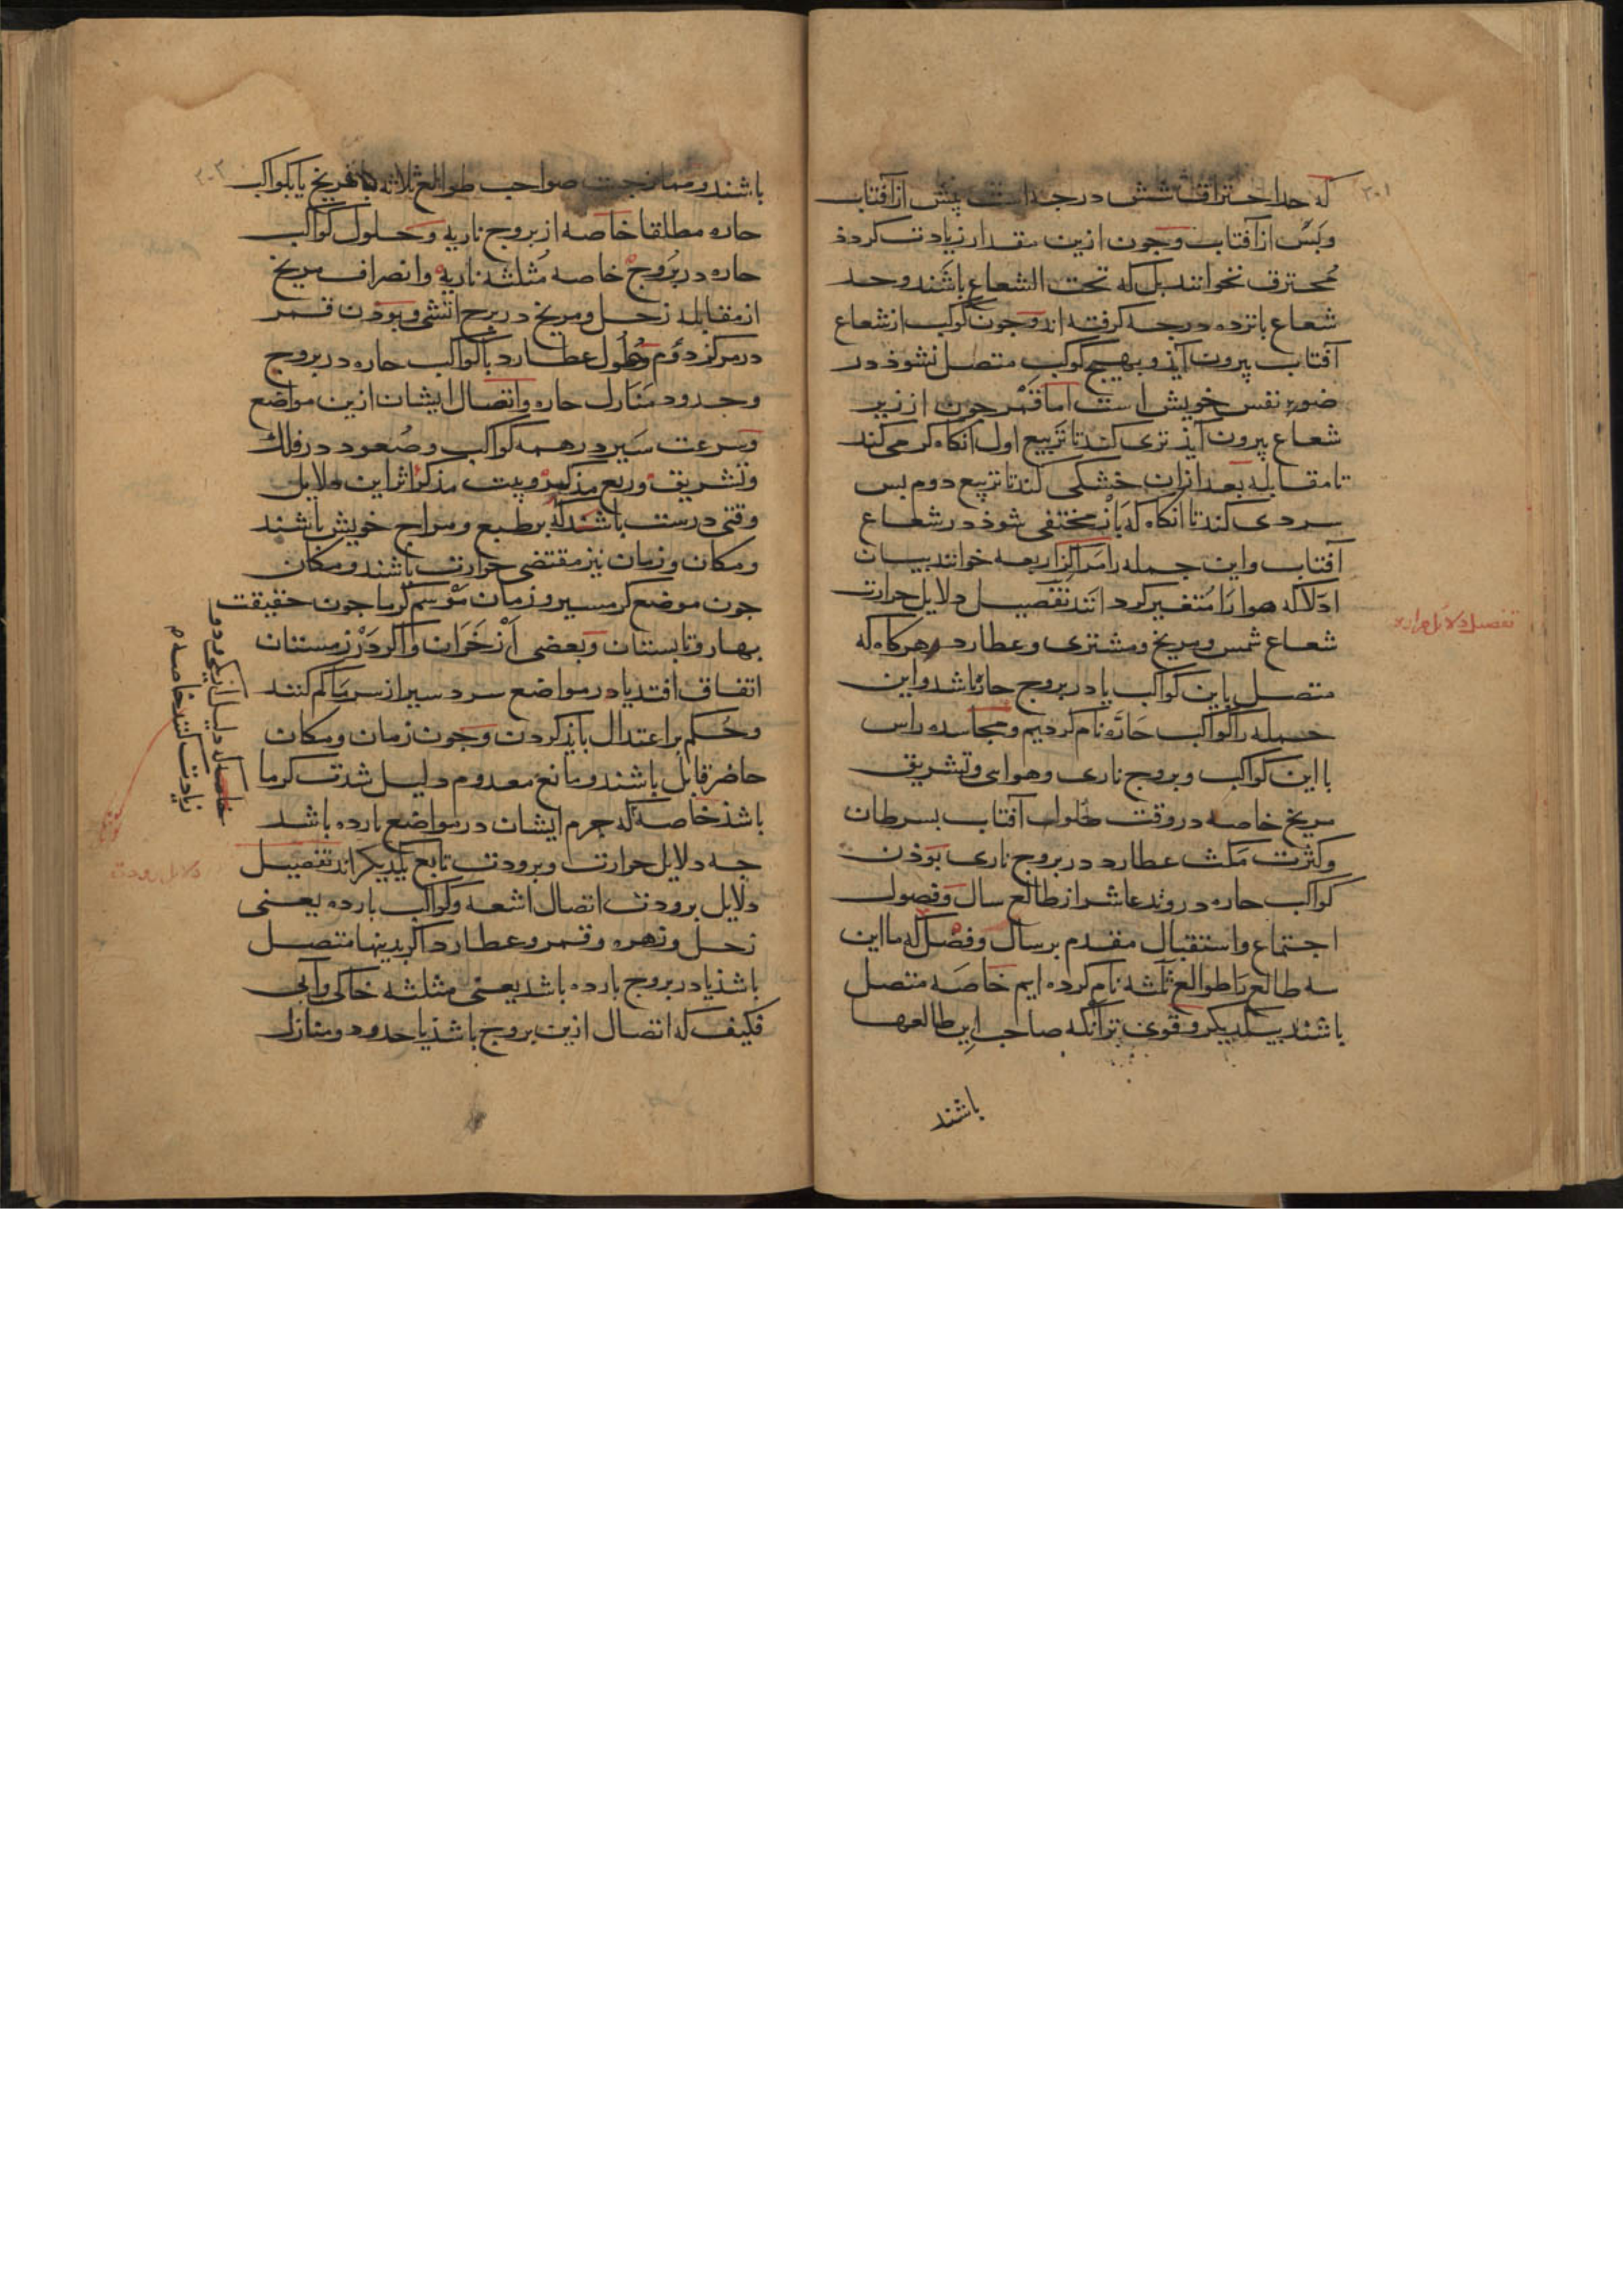 که حد احتراق شش درجه است پیش از آفتاب
وپس از آفتاب وچون ازین مقدار زیادت کردذ
محترق نخوانند بل که تحت الشعاع باشند وحد
شعاع بانزده درجه کرفته اند وجون کوکب از شعاع
آفتاب بیرون آیذ وبهیچ کوکب متصل نشوذ در
ضور نفس خویش است اما قمر جون از زیر
شعاع بیرون آیذ تری کند تا تربیع اول آنکاه کرمی کند
تا مقابله بعد ازان خشکی کند تا تربیع دوم بس
سردی کند تا آنکاه که باز مختفی شوذ در شعاع
آفتاب واین جمله را مراکز اربعه خوانند بیان
ادلا که هوا را متغیر کردانند تفصیل دلایل حرارت
شعاع شمس ومریخ ومشتری وعطارد هرکاه که
متصل باین کواکب یا در بروج حاره باشد واین
جمله را کواکب حاره نام کردیم ومجاسده راس
با این کواکب وبروج ناری وهوای وتشریق
مریخ خاصه در وقت حلول آفتاب بسرطان
وکثرت مکث عطارد در بروج ناری بوذن
کواکب حاره در وتد عاشر از طالع سال وفصول
اجتماع واستقبال مقدم بر سال وفصل که ما این
سه طالع را طوالع ثلثه نام کرده ایم خاصه متصل
باشند بیکدیکر وقوی تر آنکه صاحب این طالعها
باشند
تفصیل دلایل حرارت
باشند وممازجت صواحب طوالع ثلاثه با مریخ یا بکواکب
حاره مطلقا خاصه از بروج ناریه وحلول کواکب
حاره در بروج خاصه مثلثه ناریه وانصراف مریخ
از مقابله زحل ومریخ در برج اتشی وبوذن قمر
در مرکز دوم وحلول عطارد با کواکب حاره در بروج
وحدود منازل حاره واتصال ایشان ازین مواضع
وسرعت سیر در همه کواکب وصعود در فلک
وتشریق وربع مذکر وبیت مذکر اثر این دلایل
وقتی درست باشند که بر طبع ومزاج خویش باشند
ومکان وزمان نیز مقتضی حرارت باشند ومکان
جون موضع کرمسیر وزمان موسم کرما جون حقیقت
بهار وتابستان وبعضی از خزان واکر در زمستان
اتفاق افتد یا در مواضع سردسیر از سرما کم کنند
وحکم بر اعتدال بایذ کردن وجون زمان ومکان
حاضر قابل باشند ومانع معدوم دلیل شدت کرما
باشذ خاصه که جرم ایشان در مواضع بارده باشد
جه دلایل حرارت وبرودت تابع یکدیکر اند تفصیل
دلایل برودت اتصال اشعه وکواکب بارده یعنی
زحل وزهره وقمر وعطارد اکر بدینها متصل
باشذ یا در بروج بارده باشد یعنی مثلثه خاکی وآبی
فکیف که اتصال ازین بروج باشذ یا حدود ومنازل
زیادت کنند خاصه م
دلایل برودت